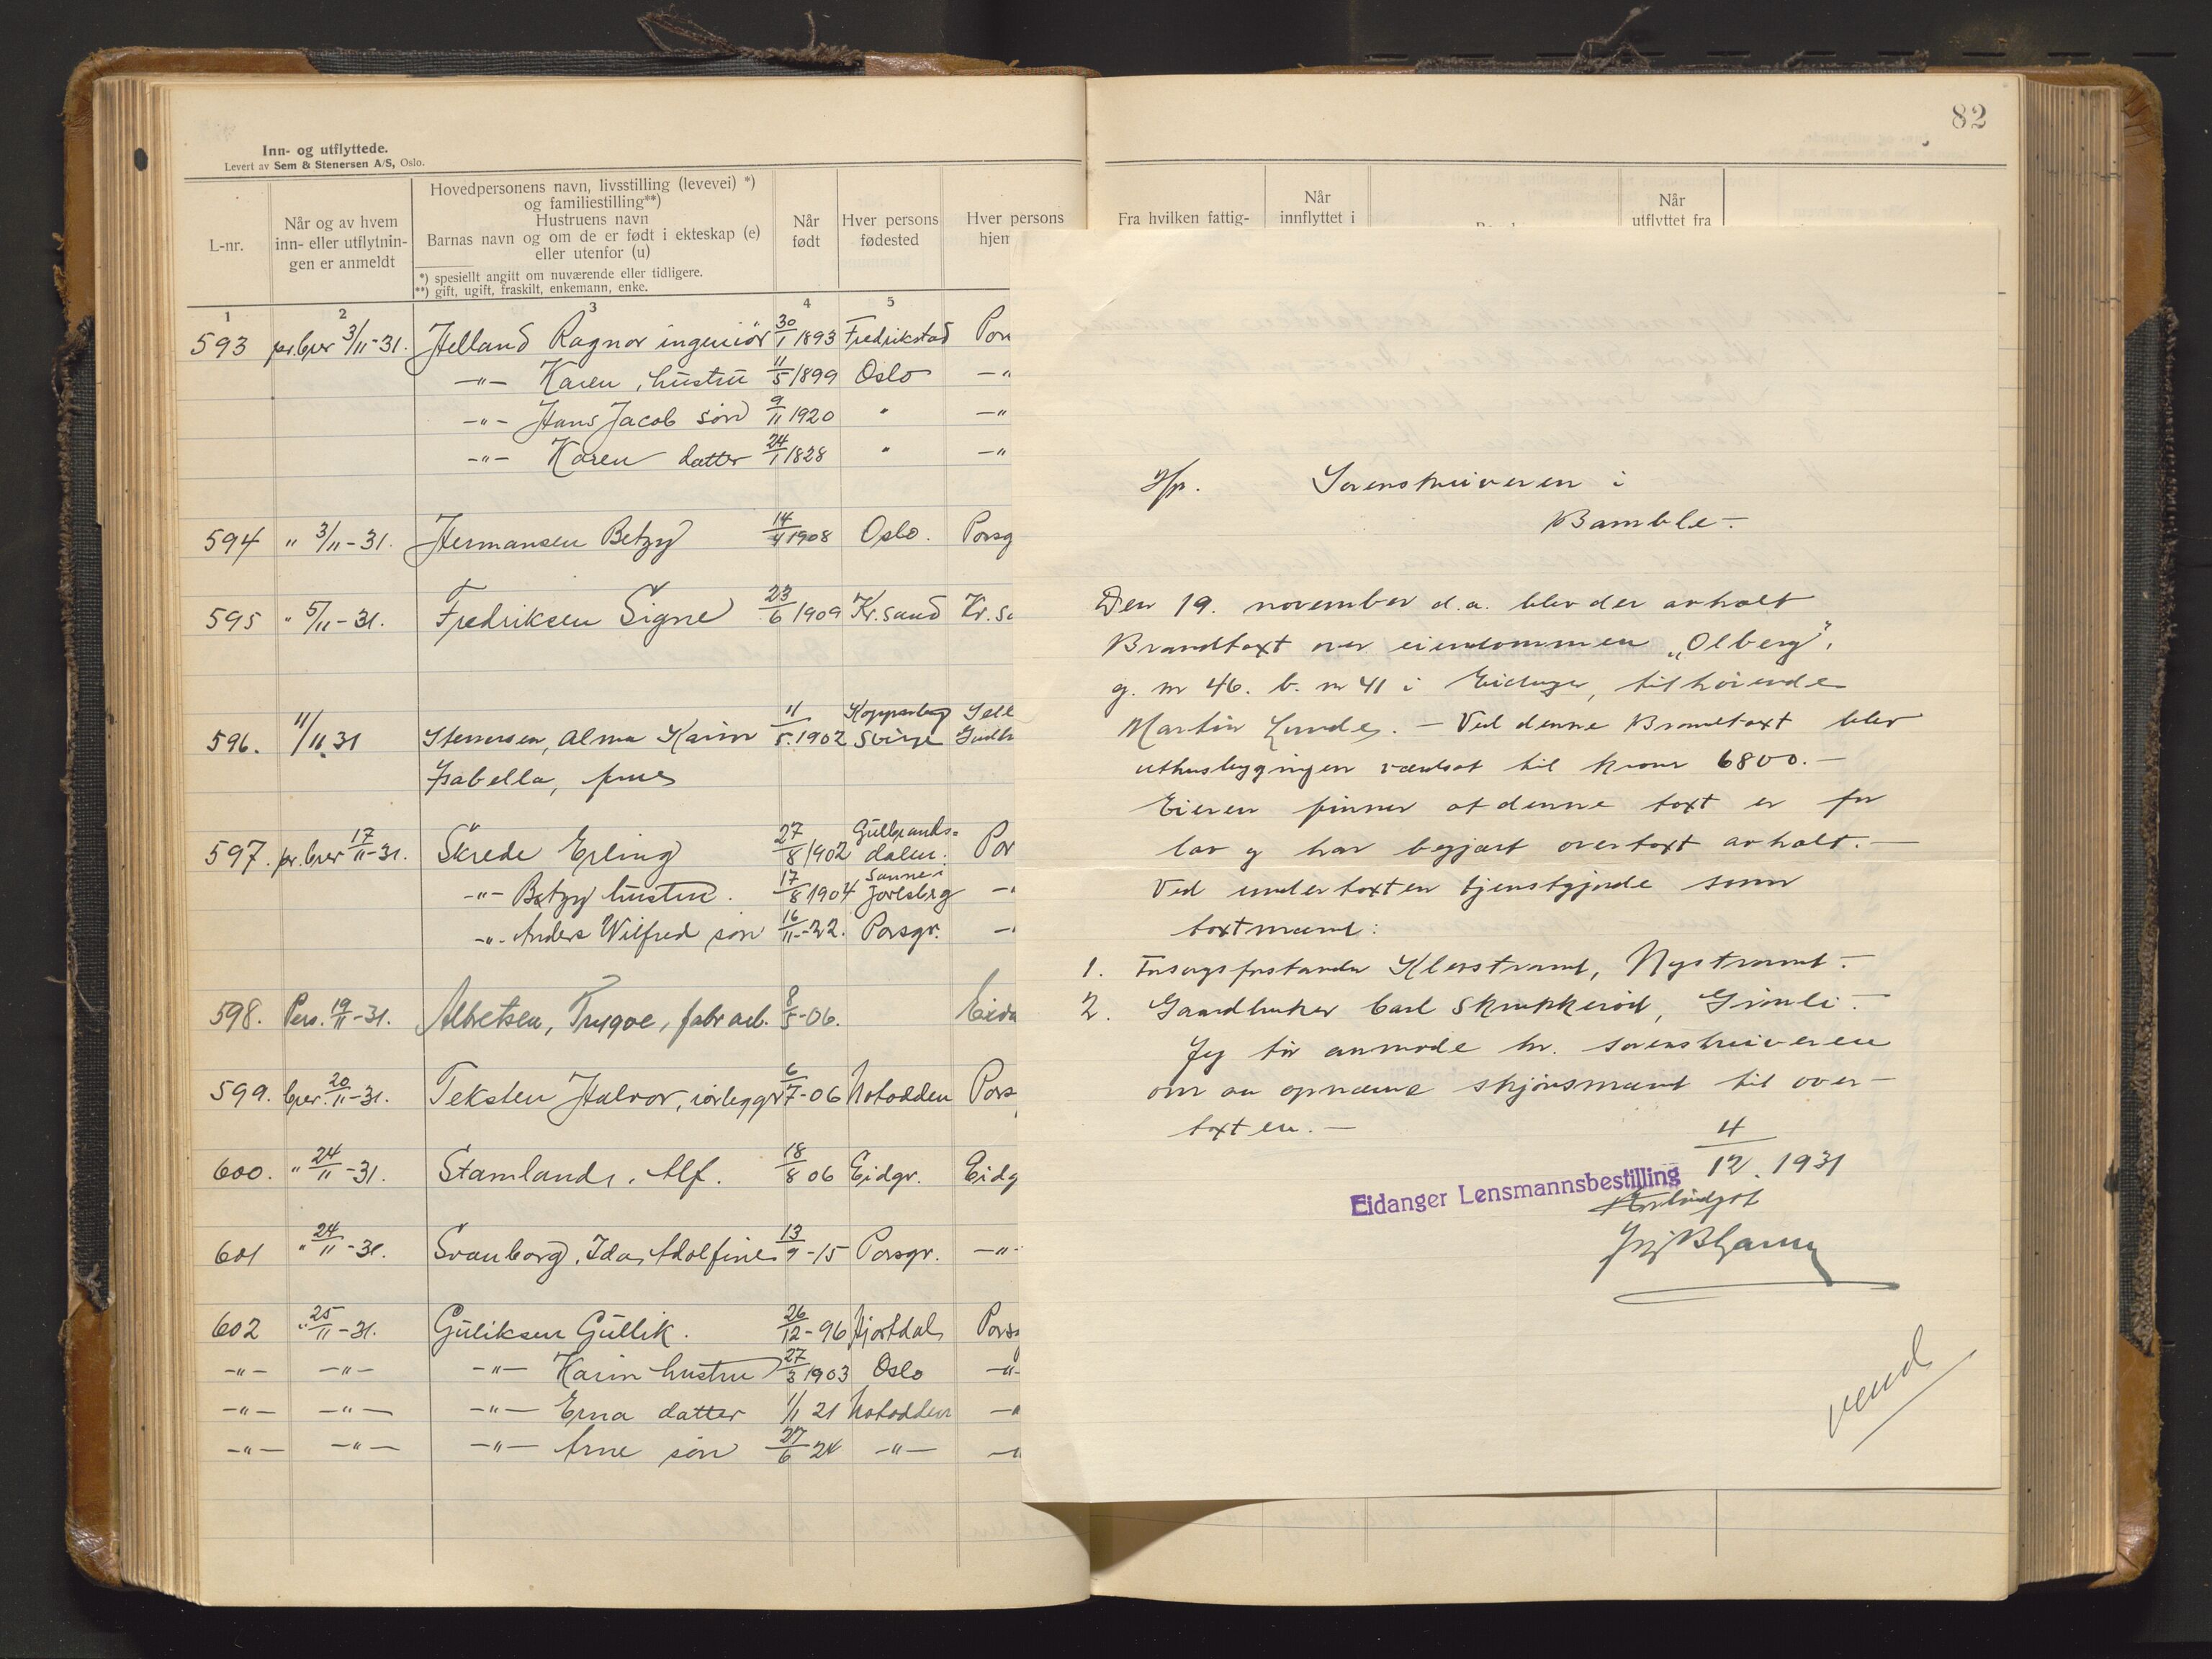 Inn- og utflyttede.
Levert av Sem & Stenersen A/S, Oslo.
L-nr.
Når og av hvem
inn- eller utflytnin-
gen er anmeldt
Hovedpersonens navn, livsstilling (levevei) *)
og familiestilling**)
Hustruens navn
Barnas navn og om de er født i ekteskap (e)
eller utenfor (u)
*) spesiellt angitt om nuværende eller tidligere.
**) gift, ugift, fraskilt, enkemann, enke.
Når
født
Hver persons
fødested
Hver persons
hjem
1 2 3 4 5
593 pr. brev 3/11-31. Helland Ragnar ingeniør 30/1 1893 Fredrikstad Por
-"- Karen, hustru 11/5 1899 Oslo -"
-"- Hans Jacob søn 9/11 1920 " -"
-"- Karen datter 24/1 1828 " -"
594 " 3/11-31. Hermansen Betzy 14/4 1908 Oslo. Porsg
595 " 5/11-31. Fredriksen Signe 23/6 1909 Kr.sand Kr.sa
596. 11/11 31 Stenersen, Alma Karin 11/5. 1902 Kopparberg Sverge
Isabella, frue
597. pr. brev 17/11-31. Skrede Erling 27/8 1902 Gulbrands=dalen. Por
-"- Betzy hustru. 17/8 1904 Sanne i Jarlsberg -"
-"- Anders Wilfred søn 16/11-22. Porsgr. -"
598. Pers. 19/11-31. Albretsen, Trygve, fabr arb. 8/5-06. Eida
599. brev. 20/11-31. Teksten Halvor, rørleggr 6/7-06 Notodden Pors
600. " 24/11-31. Stamland, Alf. 18/8 06 Eidgr. Eidg
601 " 24/11-31. Svanborg, Ida Adolfine 13/9-15 Porsgr. -"-
602 " 25/11-31. Guliksen Gullik. 26/12-96 Hjartdal Pors
-"- -"- -"- Karin hustru 27/3 1903 Oslo -"-
-"- -"- -"- Erna datter 1/1 21 Notodden -"
-"- -"- -"- Arne søn 27/6 24 -"- -"
82
Fra hvilken fattig-
Når
innflyttet i
Når
utflyttet fra
Hr. Sorenskriveren i
Bamble.-
Den 19. november d.a. blev der avholt
Brandtaxt over eiendommen „Olberg",
g. nr 46. b. nr 41 i Eidanger, tilhørende
Martin Lunde. - Ved denne Brandtaxt blev
uthusbygningen verdsat til kroner 6800.-
Eieren finner at denne taxt er for
lav og har begjært overtaxt avholt.-
Ved undertaxten tjenstgjorde som
taxtmænd:
1. Forsorgsforstander Klevstrand, Nystrand.-
2. Gaardbruker Carl Skrukkerød, Grinli.-
Jeg tør anmode hr. sorenskriveren
om aa opnævne skjønsmænd til over-
taxten.-
4/12. 1931
Eidanger Lensmannsbestilling
Ærbødigst
vend